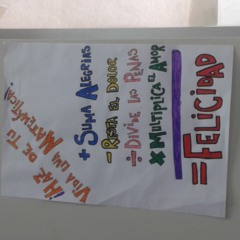 ¡HAZ
DE TU
VIDA UNA
MATEMÁTICA!
+ SUMA ALEGRÍAS
- RESTA EL DOLOR
÷ DIVIDE LAS PENAS
× MULTIPLICA EL AMOR
= FELICIDAD